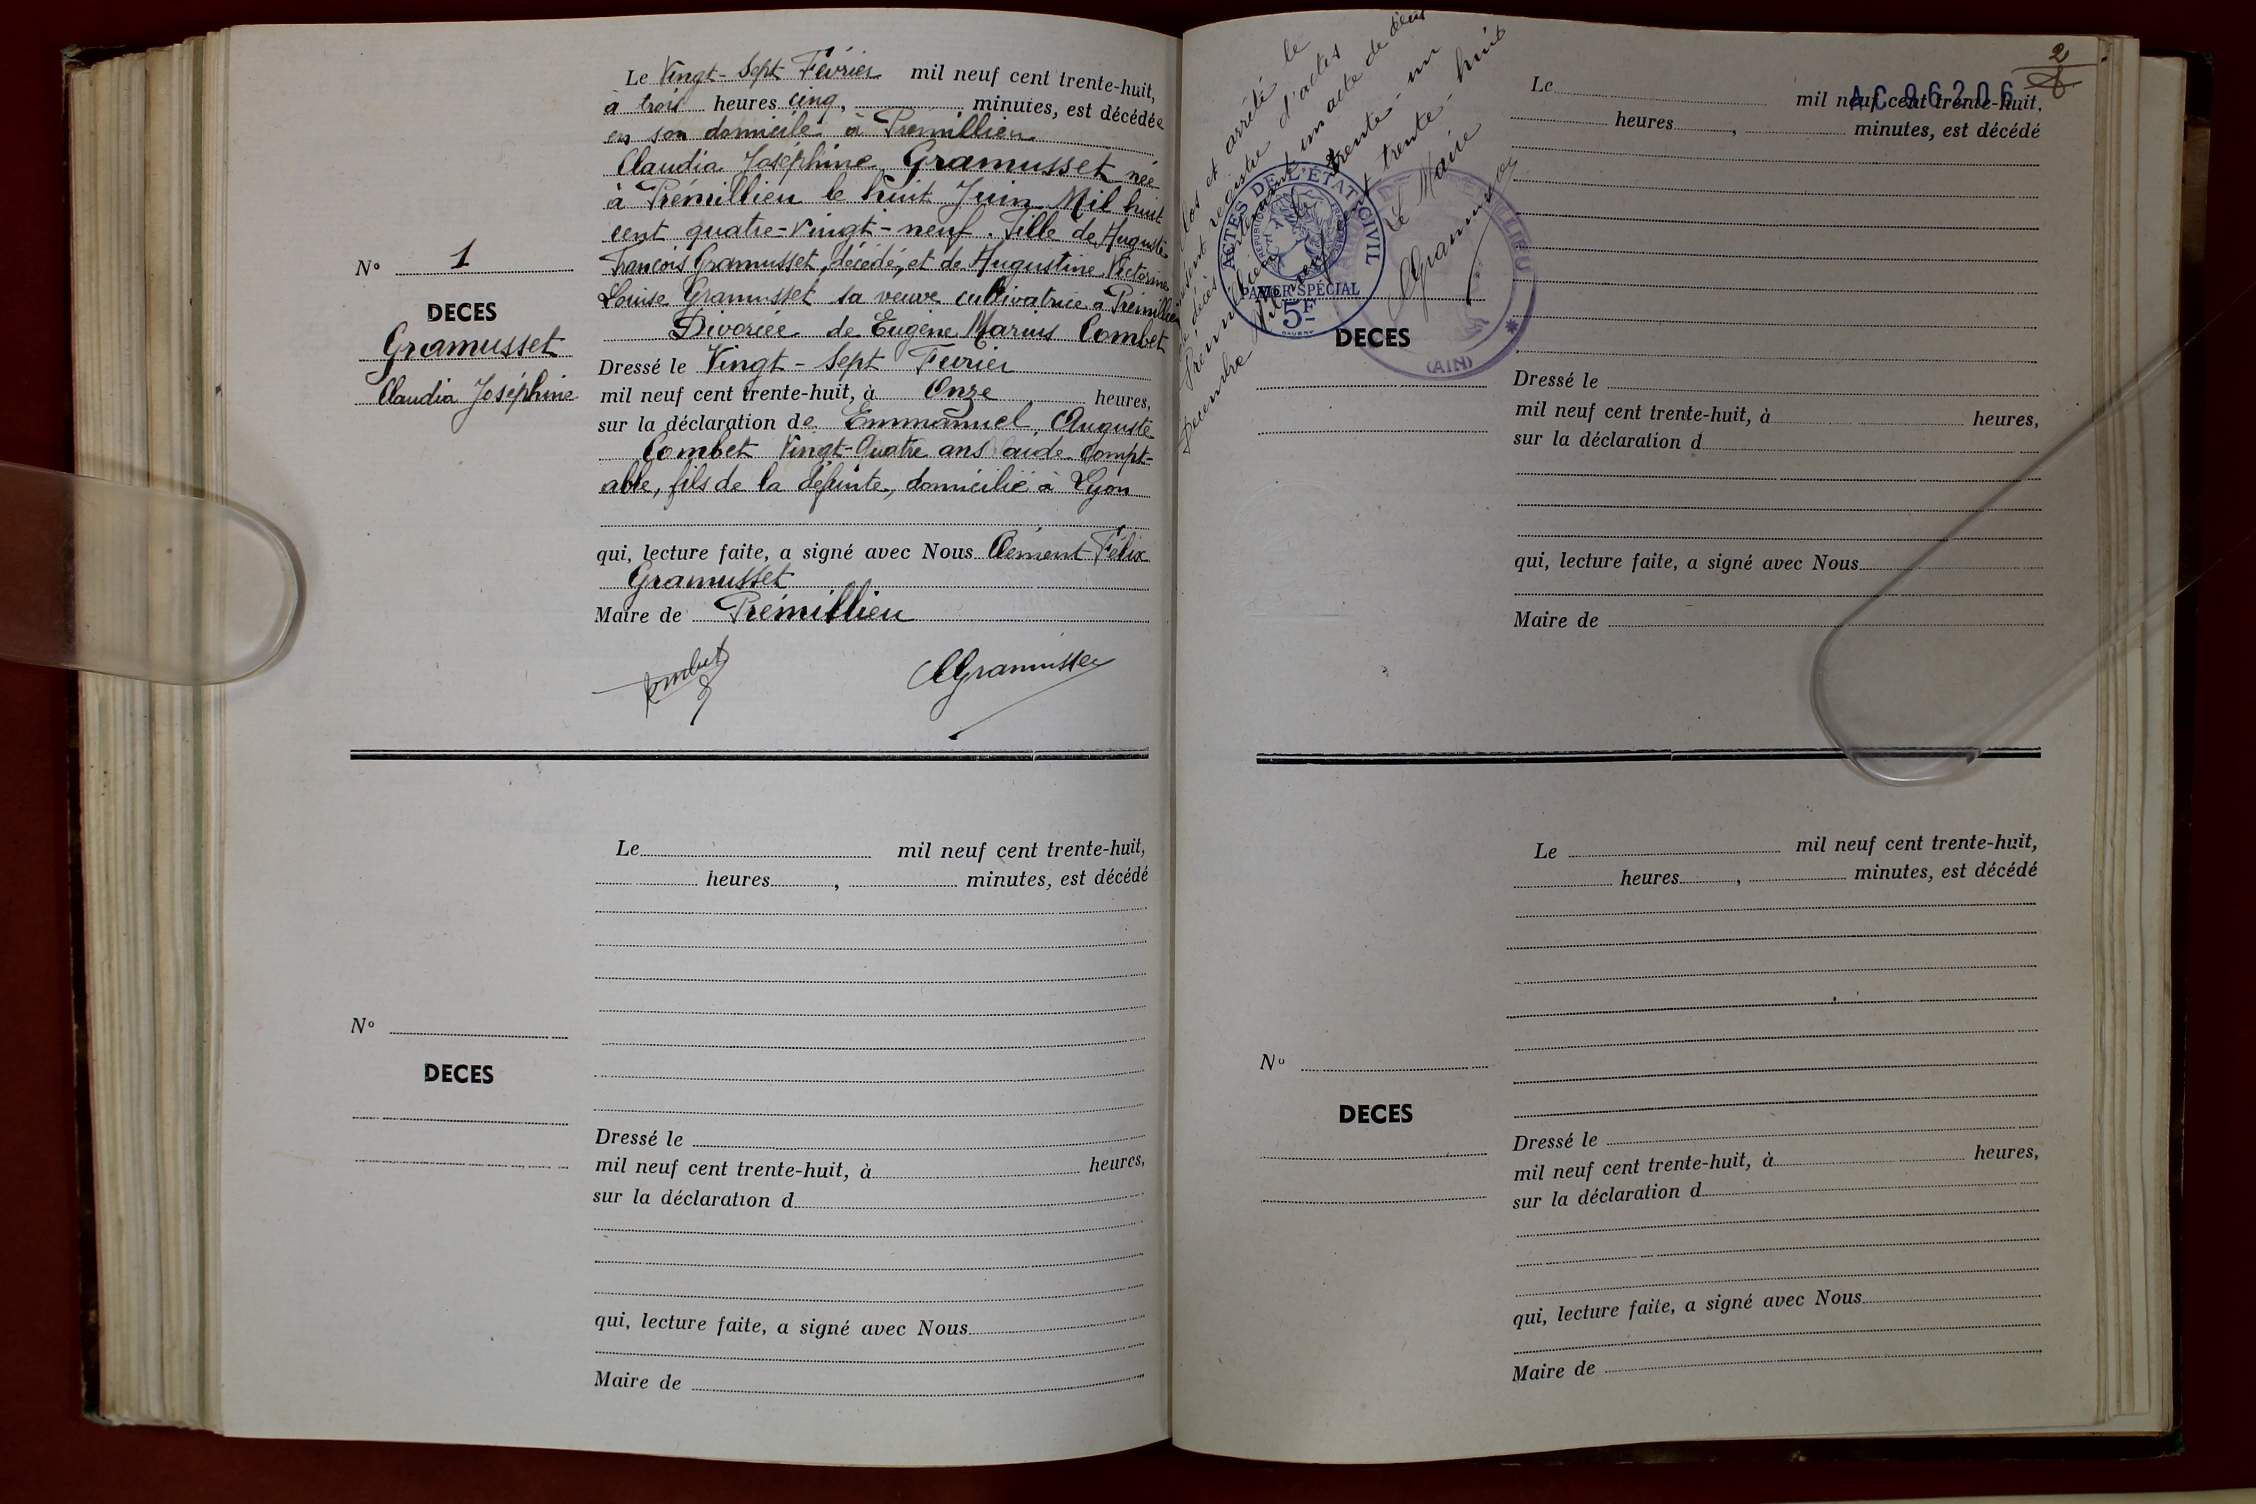 Le Vingt-Sept Février mil neuf cent trente-huit,
à trois heures cinq, minutes, est décédée
en son domicile à Prémillieu
Claudia Joséphine Gramusset née
à Prémillieu le huit Juin Mil huit
cent quatre-vingt-neuf. Fille de Auguste
François Gramusset, décédé, et de Augustine Victorine
Louise Gramusset sa veuve cultivatrice à Prémillieu
Divorcée de Eugène Marius Combet
N° 1
DECES
Gramusset
Claudia Joséphine
Dressé le Vingt-Sept Fevrier
mil neuf cent trente-huit, à Onze heures,
sur la déclaration de Emmanuel, Auguste
Combet Vingt-Quatre ans aide-Compt-
able, fils de la défunte, domicilié à Lyon
qui, lecture faite, a signé avec Nous Clément Félix
Gramusset
Maire de Prémillieu
Combet
CGramusset
Le mil neuf cent trente-huit,
heures , minutes, est décédé
N°
DECES
Dressé le
mil neuf cent trente-huit, à heures,
sur la déclaration d
qui, lecture faite, a signé avec Nous
Maire de
2
AC 96206
Clos et arrêté le
présent registre d'actes
de décès contenant un acte de décès
Prémillieu le trente-un
Décembre Mil neuf cent trente-huit
Le Maire
CGramusset
ACTES DE L'ETAT CIVIL
PAPIER SPÉCIAL
5F
(AIN)
Le mil neuf cent trente-huit,
heures , minutes, est décédé
DECES
Dressé le
mil neuf cent trente-huit, à heures,
sur la déclaration d
qui, lecture faite, a signé avec Nous
Maire de
Le mil neuf cent trente-huit,
heures , minutes, est décédé
N°
DECES
Dressé le
mil neuf cent trente-huit, à heures,
sur la déclaration d
qui, lecture faite, a signé avec Nous
Maire de